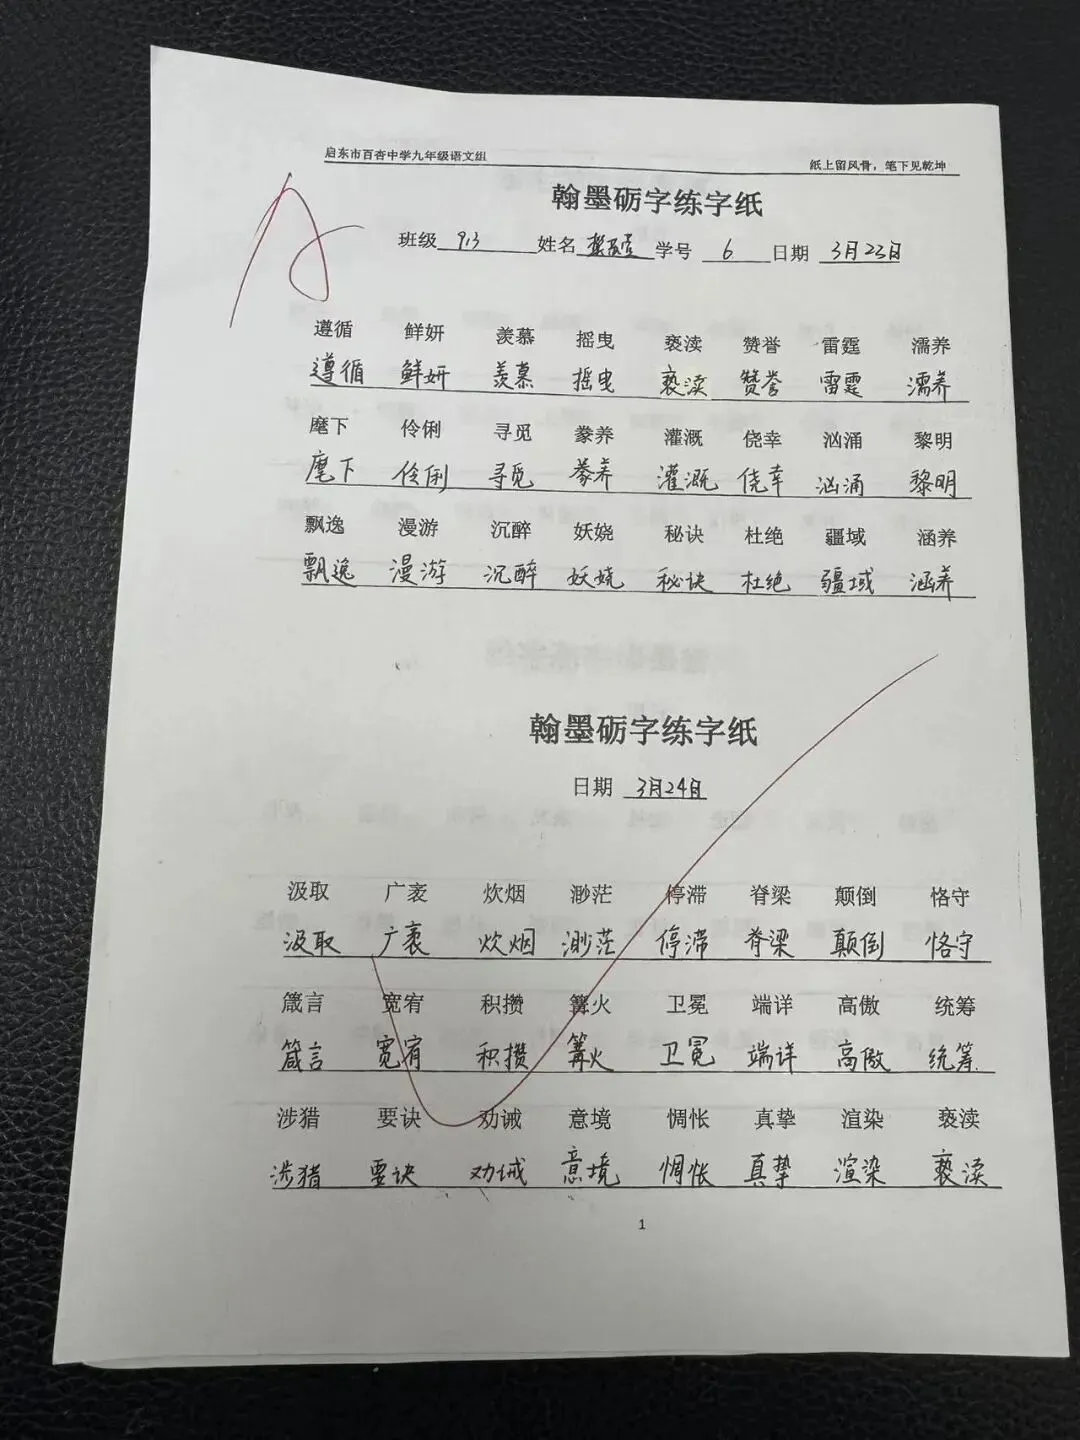 启东市百杏中学九年级语文组 纸上留风骨，笔下见乾坤
翰墨砺字练字纸
班级 913 姓名 学号 6 日期 3月23日
遵循 鲜妍 羡慕 摇曳 亵渎 赞誉 雷霆 濡养
遵循 鲜妍 羡慕 摇曳 亵渎 赞誉 雷霆 濡养
麾下 伶俐 寻觅 豢养 灌溉 侥幸 汹涌 黎明
麾下 伶俐 寻觅 豢养 灌溉 侥幸 汹涌 黎明
飘逸 漫游 沉醉 妖娆 秘诀 杜绝 疆域 涵养
飘逸 漫游 沉醉 妖娆 秘诀 杜绝 疆域 涵养
翰墨砺字练字纸
日期 3月24日
汲取 广袤 炊烟 渺茫 停滞 脊梁 颠倒 恪守
汲取 广袤 炊烟 渺茫 停滞 脊梁 颠倒 恪守
箴言 宽宥 积攒 篝火 卫冕 端详 高傲 统筹
箴言 宽宥 积攒 篝火 卫冕 端详 高傲 统筹
涉猎 要诀 劝诫 意境 惆怅 真挚 渲染 亵渎
涉猎 要诀 劝诫 意境 惆怅 真挚 渲染 亵渎
1